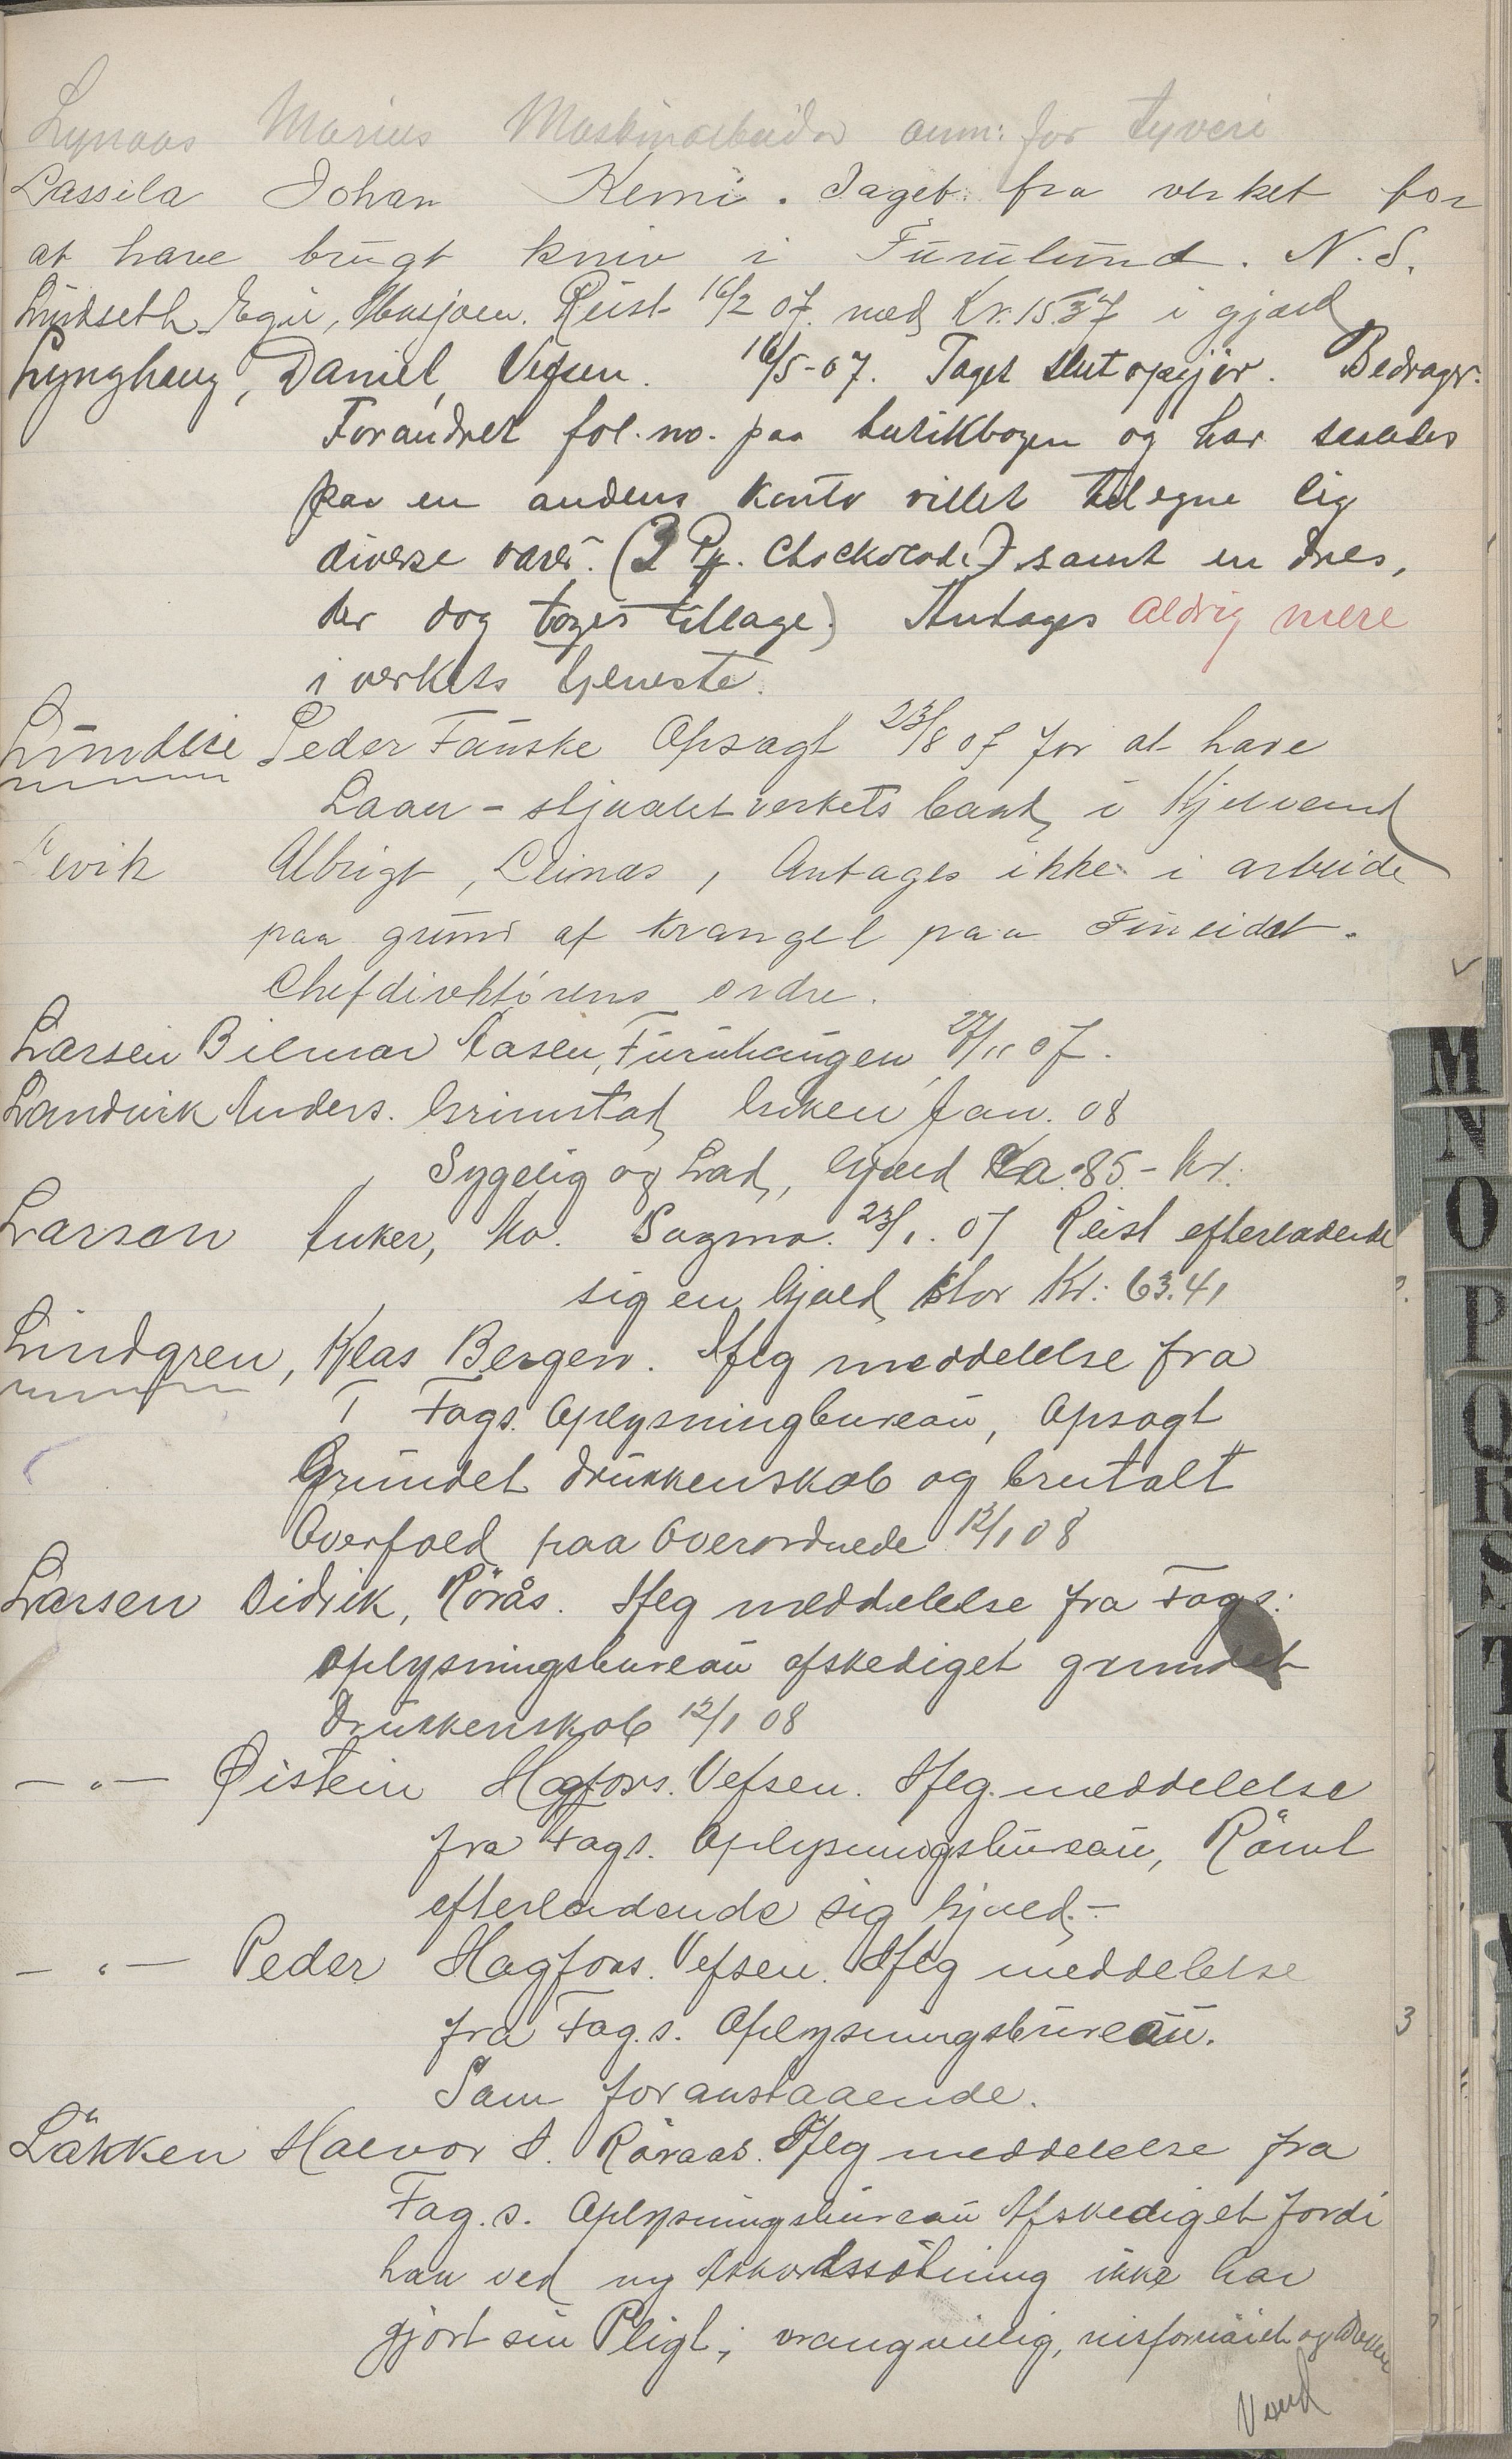 Lynaas Marius Maskinarbeider anm: for tyveri
Lassila Johan Kemi. Jaget fra verket for
at have brugt kniv i Furulund. N.S.
Lindseth Egil, Mosjøen. Reist 16/2 07. med Kr. 15.37 i gjæld
Lynghaug, Daniel, Vefsen. 16/5-07. Taget slutopgjør. Bedrager.
Forandret fol. no. paa butikbogen og har saaledes
paa en andens konto villet tilegne sig
diverse varer. (2 Pk. Chockolade) samt en dres,
der dog toges tillage) Antages aldrig mere
i verkets tjeneste.
Lundlie Peder Fauske Opsagt 23/8 07 for at have
Laan-stjaalet verkets baad i Kjelvand
evik Albrigt, Leinæs, Antages ikke i arbeide
paa grund af krangel paa Fineidet.
Chefdirektørens ordre.
Larsen Bilmar Aasen, Furuhaugen, 27/11 07.
Landvik Anders. Grimstad, Jan. 08
Sygelig og Lad, Gjæld Ca. 85.- Kr.
Larsen Anker, Mo. Sagmo. 23/1. 07 Reist efterladende
sig en Gjæld stor Kr: 63.41
Lindgren, Klas Bergen. Iflg meddelelse fra
T Fags. Oplysningbureau, Opsagt
Grundet drukkenskab og brutalt
Overfald paa Overordnede 12/1 08
Larsen Didrik, Rörås. Ifleg meddelelse fra Fag s:
Oplysningsbureau afskediget grundet
Drukkenskab 12/1 08
— " — Øistein Hagfors. Vefsen. Ifleg. meddelelse
fra Fag s. Oplysningsbureau, Römt
efterladende sig Gjæld.-
— " — Peder Hagfors. Vefsen. Ifleg meddelelse
fra Fag. s. Oplysningsbureau.
Som foranstaaende.
Läkken Halvor S. Röraas. Ifleg meddelelse fra
Fag. s. Oplysningsbureau Afskediget fordi
han ved ny Akkordssätning ikke har
gjort sin Pligt; vrangvillig, misfornöiet og
Vend
M
N
O
P
Q
R
S
T
U
V
3